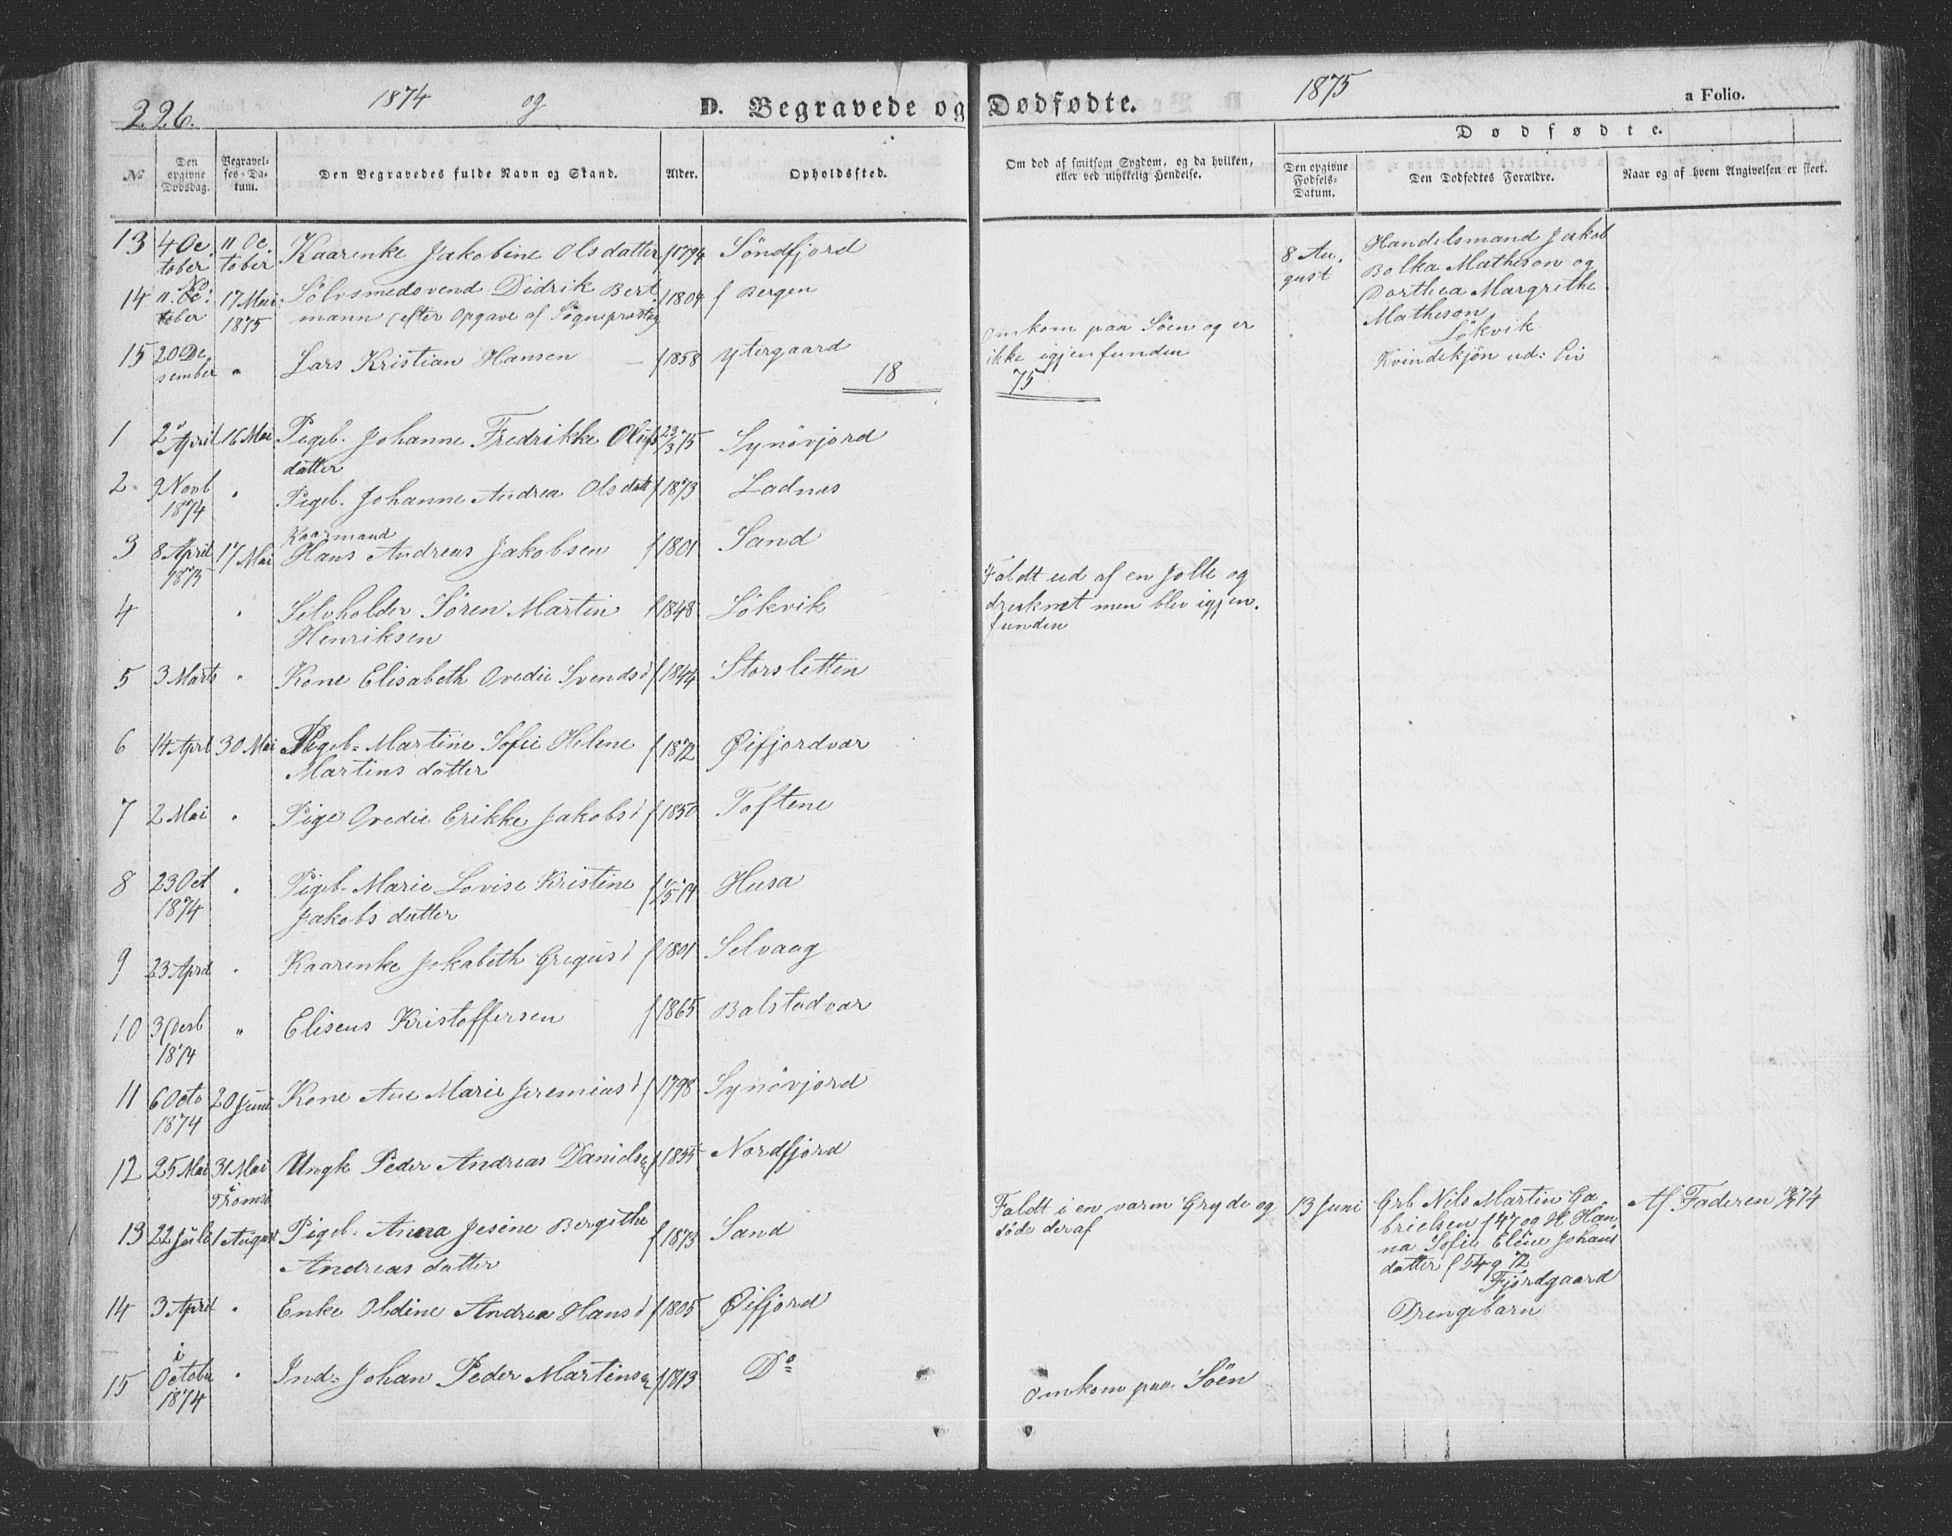 226.
1874 og 1875
D. Begravede og Dødfødte.
a Folio.
No
Den opgivne Dødsdag.
Begravelses-Datum.
Den Begravedes fulde Navn og Stand.
Alder.
Opholdssted.
Om død af smitsom Sygdom, og da hvilken, eller ved ulykkelig Hendelse.
Dødfødte.
Den opgivne Fødsels-Datum.
Den Dødfødtes Forældre.
Naar og af hvem Angivelsen er skeet.
13 4 October 11 October Kaarenke Jakobine Olsdatter f 1794 Söndfjord
8 August
Handelsmand Jakob
Bolka Matheson og
Dorthea Margrithe
Matheson,
Lökvik
Kvindekjön ud: Liv
14 17 Mai 1875 Sölvsmedsvend Didrik Bert
mann (efter Opgave af f 1809 f Bergen
15 20 Desember " Lars Kristian Hansen f 1858 Ytergaard
Omkom paa Söen og er
ikke igjenfunden
18 75
1 2 April 16 Mai Pigeb. Johanne Fredrikke Olufs
datter f 23/3 75 Synövjord
2 9 Novb 1874 " Pigeb. Johanne Andrea Olsdatt f 1873 Ladnes
3 8 April 1875 17 Mai Kaarmand
Hans Andreas Jakobsen f 1801 Sand
4 " Selvholder Sören Martin
Henriksen f 1848 Lökvik
Faldt ud af en Jolle og
druknet men blev igjen-
funden
5 3 Marts " Kone Elisabeth Ovedie Svendsd f 1844 Storsletten
6 14 Aprl 30 Mai Pigeb. Martine Sofie Helene
Martins datter f 1872 Øifjordvær
7 2 Mai " Pige Ovedie Erikke Jakobsd f 1850 Toftene
8 23 Oct 1874 " Pigeb. Marie Lovise Kristine
Jakobs datter f 1/5 74 Husa
9 23 April " Kaarenke Jakobeth Gregusd f 1801 Selvaag
10 3 Desb 1874 " Eliseus Kristoffersen f 1865 Balstadvær
11 6 Octo 1874 20 Juni Kone Ane Marie Jeremiasd f 1798 Synövjord
12 25 Mai 31 Mai i Tromsö Ungk Peder Andreas Daniels f 1855 Nordfjord
13 22 Juli 1 August Pigeb. Anna Jesine Bergithe
Andreas datter f 1873 Sand
Faldt i en varm Gryde og
döde deraf
13 Juni
Grb Nils Martin Ga
brielsen f 47 og H Han
na Sofie Eline Johans
datter f 54 g 72
Fjordgaard
Drengebarn
Af Faderen 74
14 3 April " Enke Oldine Andrea Hansd f 1805 Øifjord
15 i October 1874 " Ind: Johan Peder Martinsen f 1813 Do
Omkom paa Söen